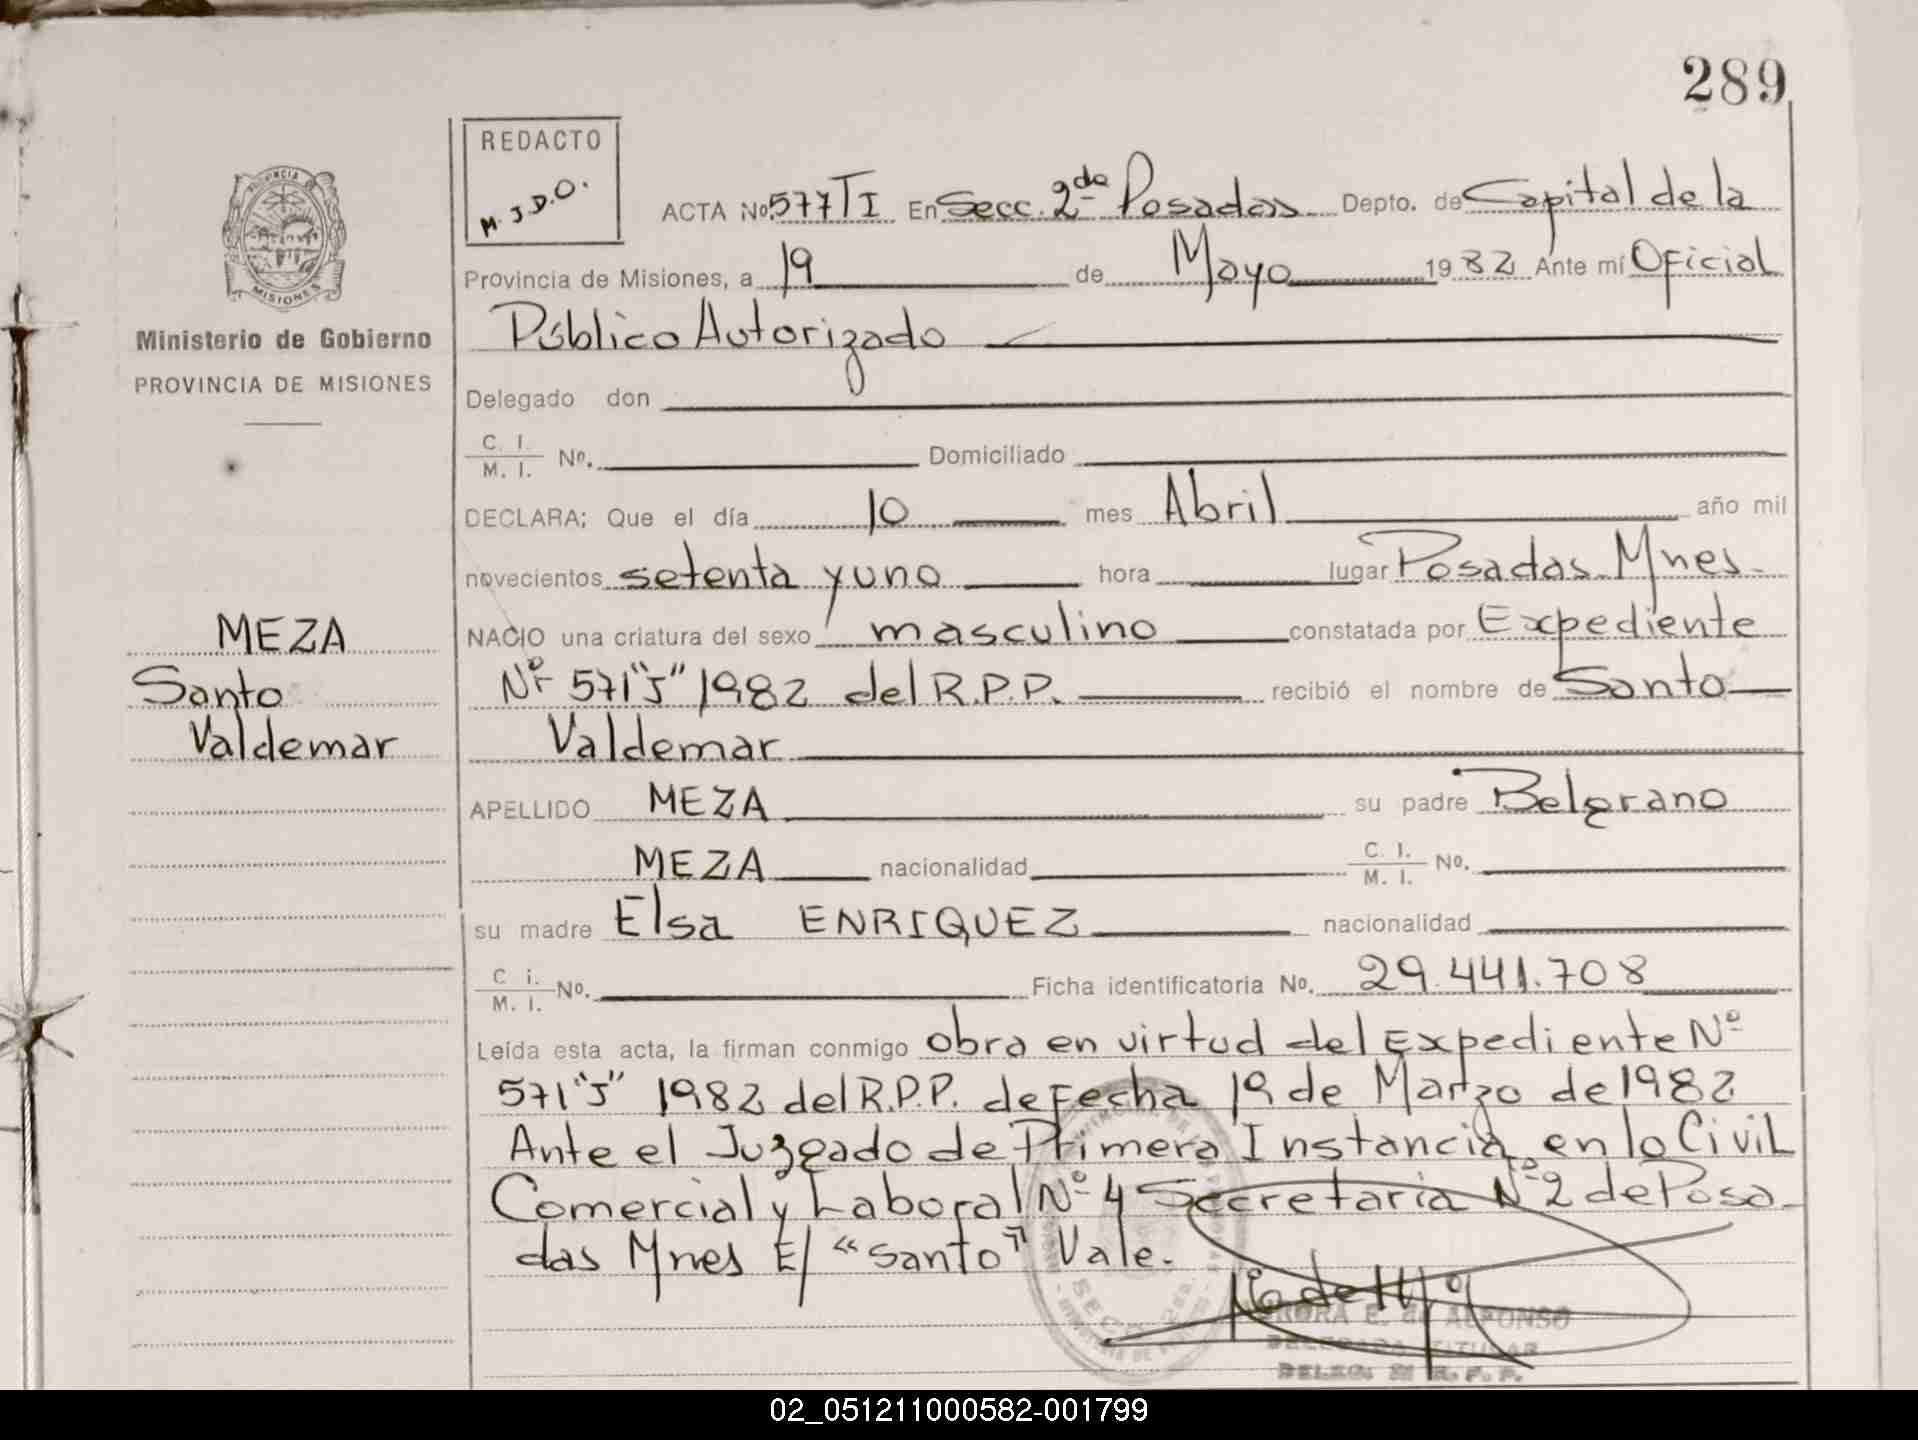 289
REDACTO
M.J.D.O.
PROVINCIA DE
MISIONES
Ministerio de Gobierno
PROVINCIA DE MISIONES
MEZA
Santo
Valdemar
ACTA No. 577 TI En Secc. 2da Posadas Depto. de Capital de la
Provincia de Misiones, a 19 de Mayo 1982 Ante mí Oficial
Público Autorizado
Delegado don
C. I. / M. I. No. Domiciliado
DECLARA; Que el día 10 mes Abril año mil
novecientos setenta y uno hora lugar Posadas Mnes
NACIO una criatura del sexo masculino constatada por Expediente
Nº 571"J" 1982 del R.P.P. recibió el nombre de Santo
Valdemar
APELLIDO MEZA su padre Belgrano
MEZA nacionalidad C. I. / M. I. No.
su madre Elsa ENRIQUEZ nacionalidad
C i. / M. I. No. Ficha identificatoria No. 29.441.708
Leída esta acta, la firman conmigo obra en virtud del Expediente Nº
571"J" 1982 del R.P.P. de Fecha 19 de Marzo de 1982
Ante el Juzgado de Primera Instancia en lo Civil
Comercial y Laboral Nº 4 Secretaria Nº 2 de Posa-
das Mnes E/ "Santo" Vale.
E. de ALFONSO
DELEGADA TITULAR
DELEG. R. P. P.
02_051211000582-001799